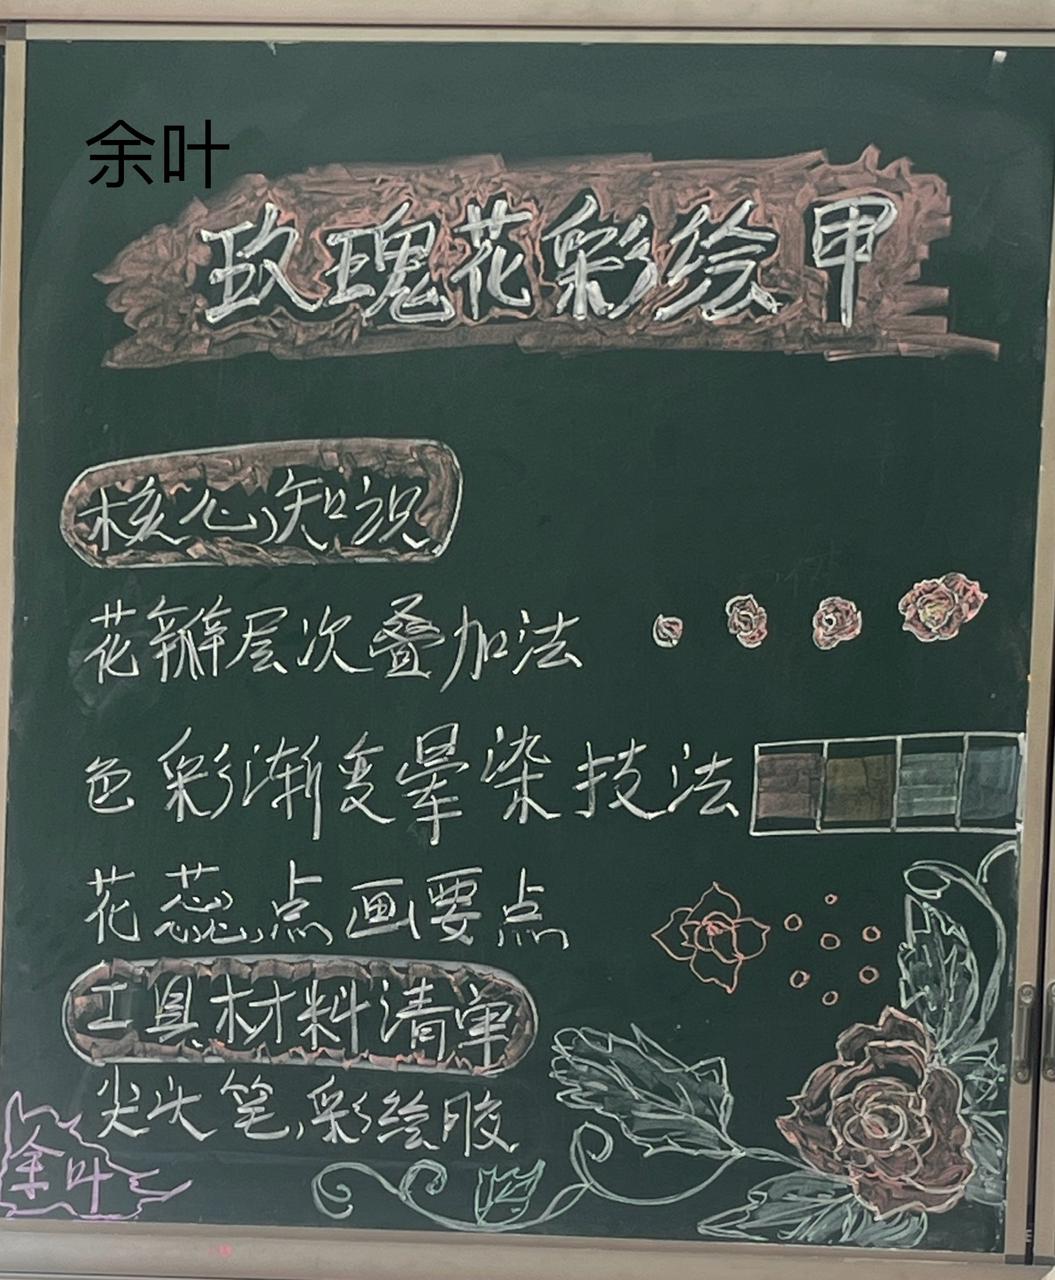 余叶
玫瑰花彩绘甲
核心知识
花瓣层次叠加法
色彩渐变晕染技法
花蕊点画要点
工具材料清单
尖头笔,彩绘胶
余叶